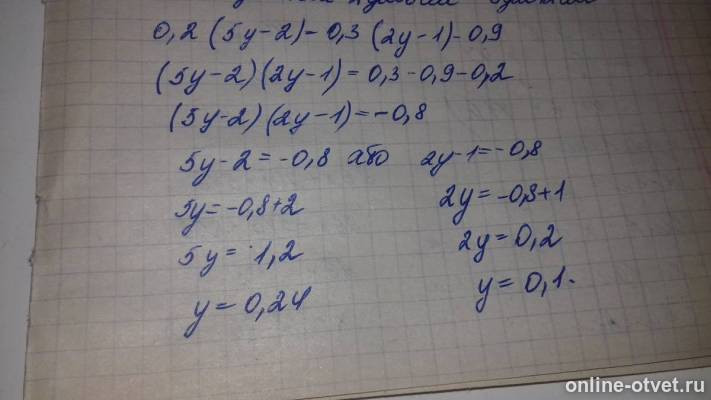 0,2 (5y-2) - 0,3 (2y-1) - 0,9
(5y-2)(2y-1) = 0,3 - 0,9 - 0,2
(5y-2)(2y-1) = -0,8
5y-2 = -0,8 або 2y-1 = -0,8
5y = -0,8+2 2y = -0,8+1
5y = 1,2 2y = 0,2
y = 0,24 y = 0,1.
online-otvet.ru